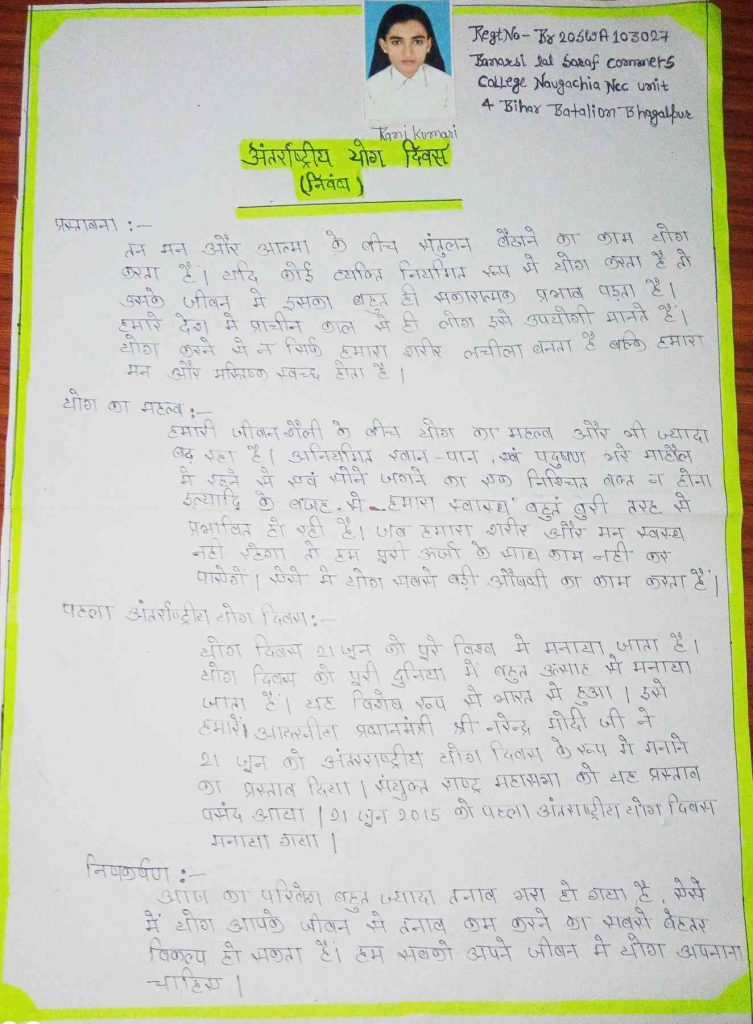 Regt No- Br 20SWA103027
Banarsi lal Saraf commers
College Naugachia Ncc unit
4 Bihar Batalion Bhagalpur
Rani Kumari
अंतर्राष्ट्रीय योग दिवस
(निबंध)
प्रस्तावना :-
तन मन और आत्मा के बीच संतुलन बैठाने का काम योग
करता है। यदि कोई व्यक्ति नियमित रूप से योग करता है तो
उसके जीवन मे इसका बहुत ही सकारात्मक प्रभाव पड़ता है।
हमारे देश मे प्राचीन काल से ही लोग इसे उपयोगी मानते हैं।
योग करने से न सिर्फ हमारा शरीर लचीला बनता है बल्कि हमारा
मन और मस्तिष्क स्वच्छ होता है।
योग का महत्व :-
हमारी जीवन शैली के बीच योग का महत्व और भी ज्यादा
बढ़ रहा है। अनियमित खान-पान, एवं प्रदुषण भरे माहौल
मे रहने से एवं सोने जगने का एक निश्चित वक्त न होना
इत्यादि के वजह से हमारा स्वास्थ बहुत बुरी तरह से
प्रभावित हो रही है। जब हमारा शरीर और मन स्वस्थ
नही रहेगा तो हम पूरी ऊर्जा के साथ काम नही कर
पायेगें। ऐसे मे योग सबसे बड़ी औषधी का काम करता है।
पहला अंतर्राष्ट्रीय योग दिवस :-
योग दिवस 21 जून को पूरे विश्व मे मनाया जाता है।
योग दिवस को पूरी दुनिया में बहुत उत्साह से मनाया
जाता है। यह विशेष रूप से भारत मे हुआ। इसे
हमारे आदरनीय प्रधानमंत्री श्री नरेन्द्र मोदी जी ने
21 जून को अंतरराष्ट्रीय योग दिवस के रूप मे मनाने
का प्रस्ताव दिया। संयुक्त राष्ट्र महासभा को यह प्रस्ताव
पसंद आया। 21 जून 2015 को पहला अंतर्राष्ट्रीय योग दिवस
मनाया गया।
निष्कर्षण :-
आज का परिवेश बहुत ज्यादा तनाव भरा हो गया है, ऐसे
में योग आपके जीवन से तनाव कम करने का सबसे बेहतर
विकल्प हो सकता है। हम सबको अपने जीवन मे योग अपनाना
चाहिए।